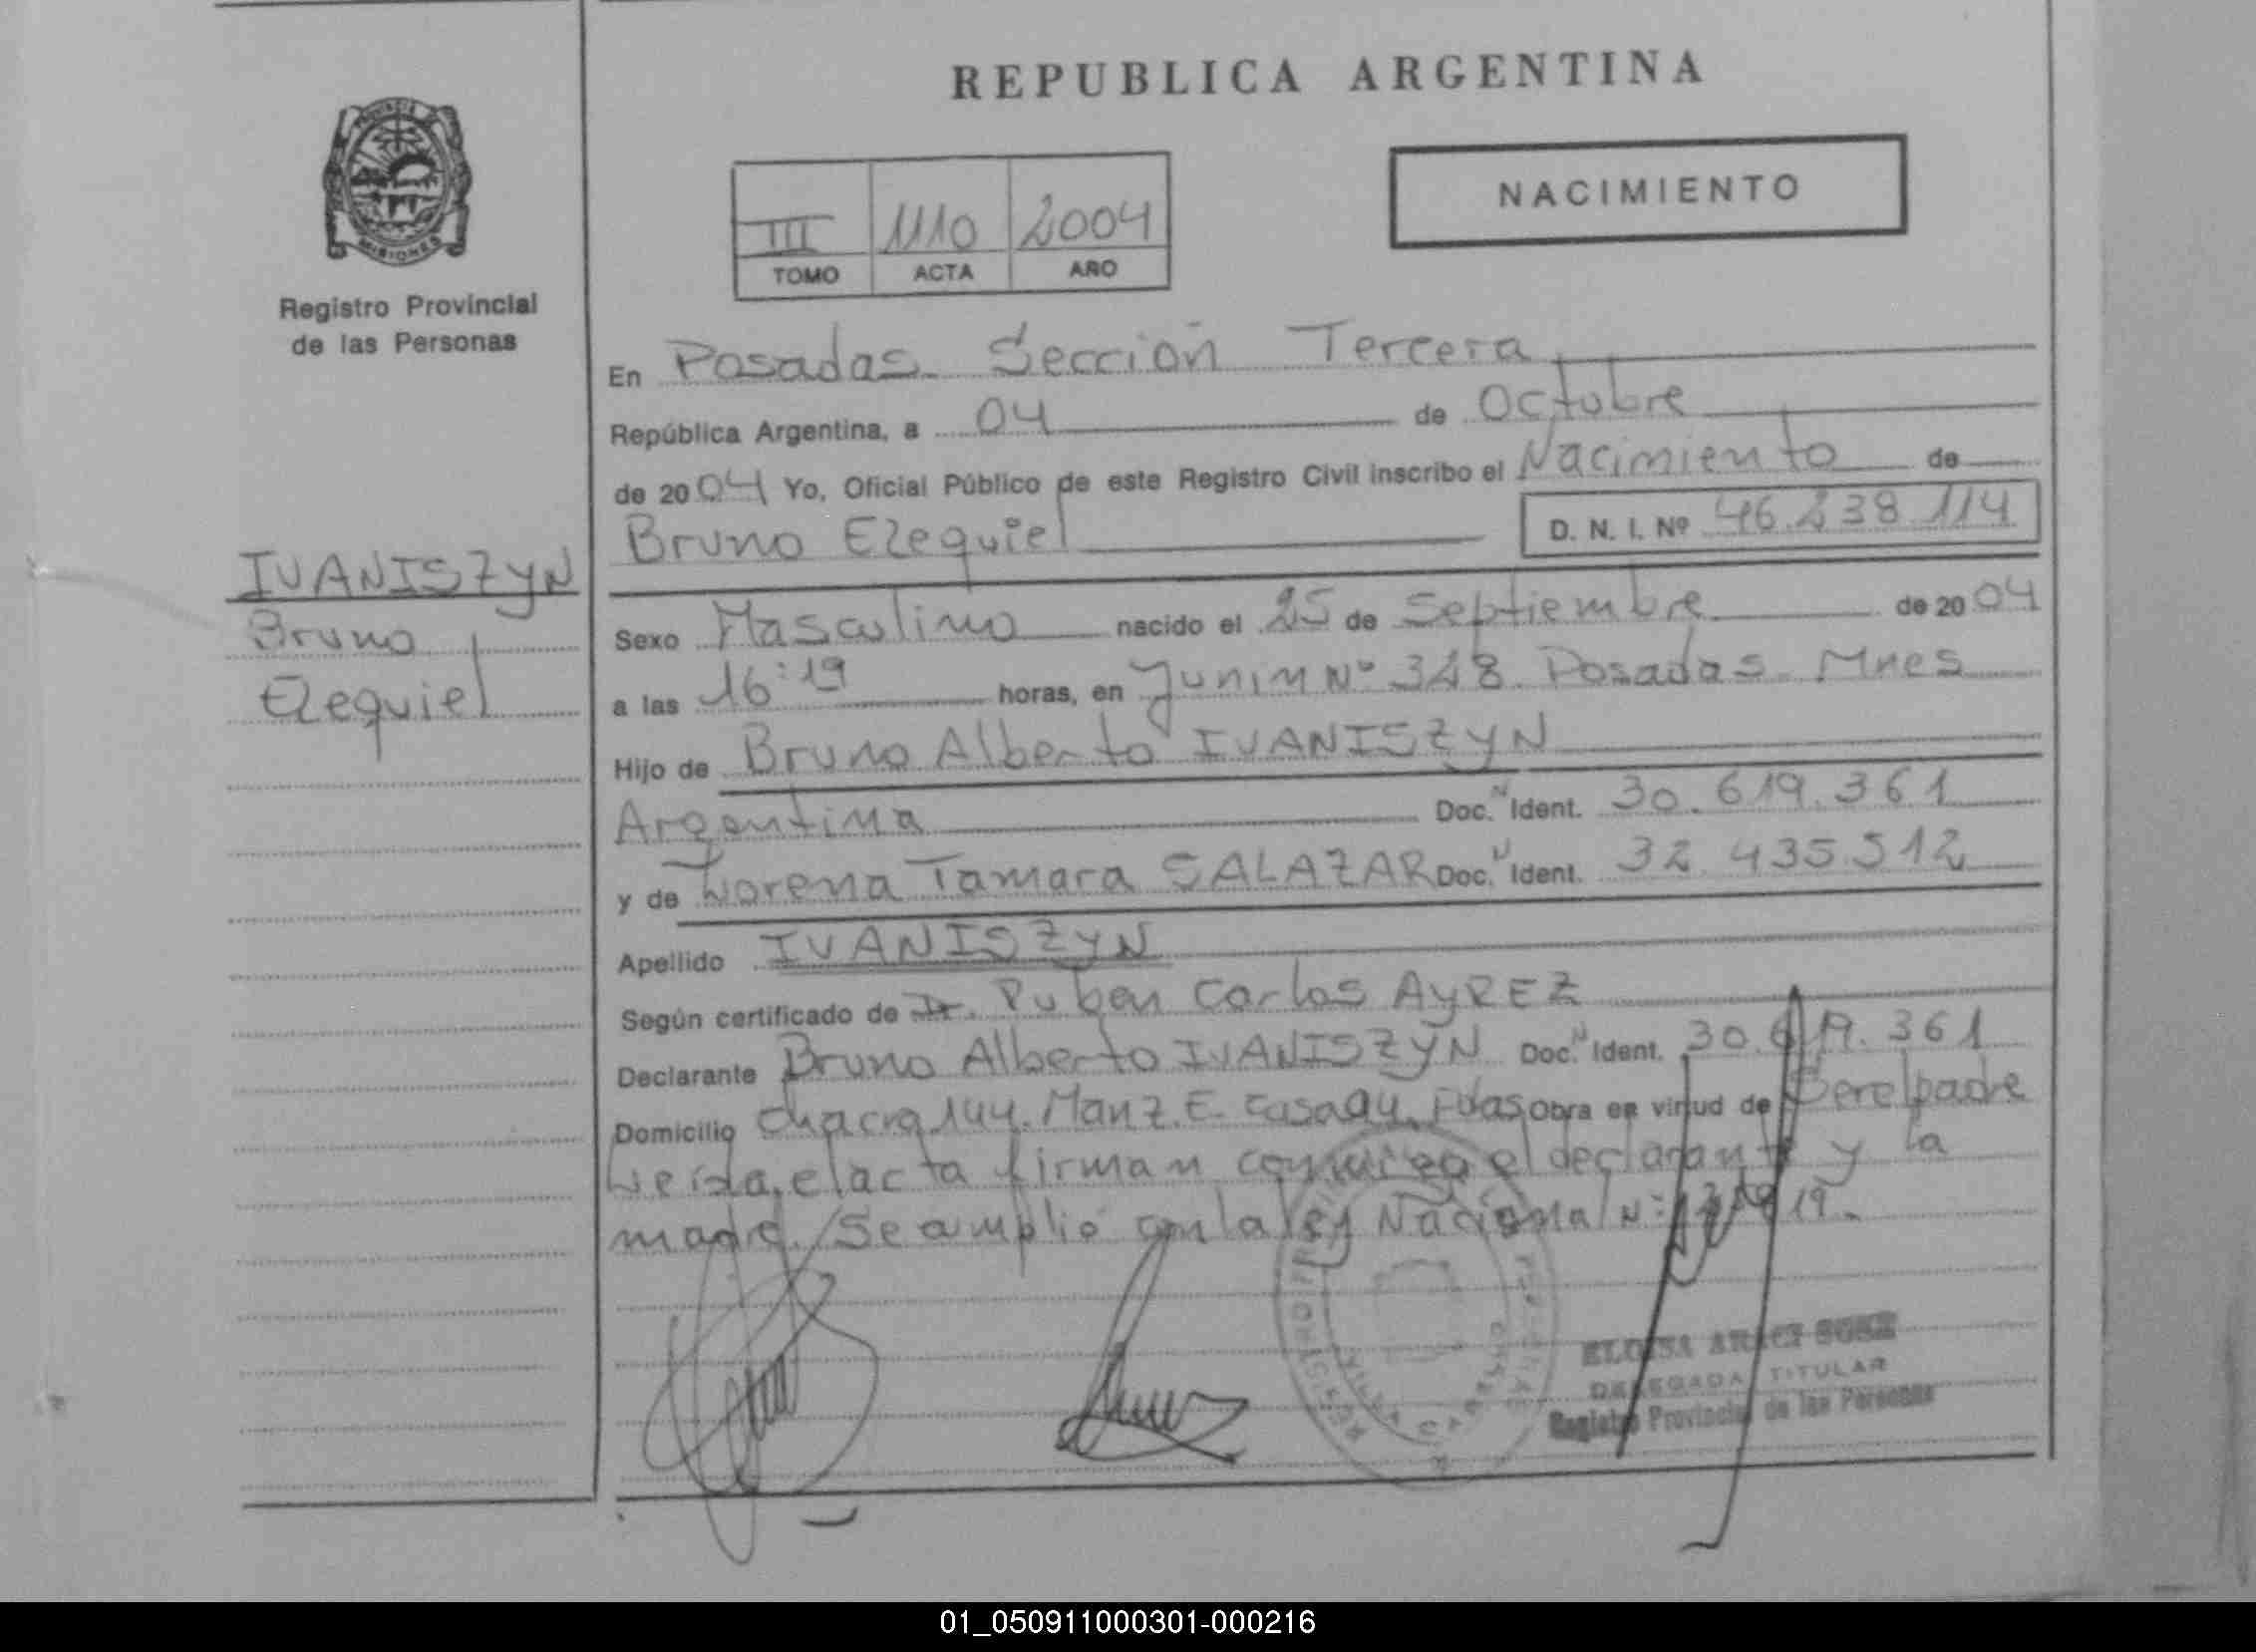 REPUBLICA ARGENTINA
NACIMIENTO
III 1110 2004
TOMO ACTA AÑO
PROVINCIA DE
MISIONES
Registro Provincial
de las Personas
IVANISZYN
Bruno
Ezequiel
En Posadas Sección Tercera
República Argentina, a 04 de Octubre
de 2004 Yo, Oficial Público de este Registro Civil inscribo el Nacimiento de
Bruno Ezequiel D. N. I. Nº 46.238.114
Sexo Masculino nacido el 25 de Septiembre de 2004
a las 16:19 horas, en Junin Nº 348. Posadas. Mnes
Hijo de Bruno Alberto IVANISZYN
Argentina Doc. N Ident. 30.619.361
y de Lorena Tamara SALAZAR Doc. N Ident. 32.435.512
Apellido IVANISZYN
Según certificado de Dr. Ruben Carlos AYREZ
Declarante Bruno Alberto IVANISZYN Doc. N Ident. 30.619.361
Domicilio Chacra 144. Manz. E. Casa 94. Pdas Obra en virtud de Ser el padre
Leída el acta firman conmigo el declarante y la
madre. Se amplió con la ley Nacional Nº
DELEGADA TITULAR
Registro Provincial de las Personas
01_050911000301-000216